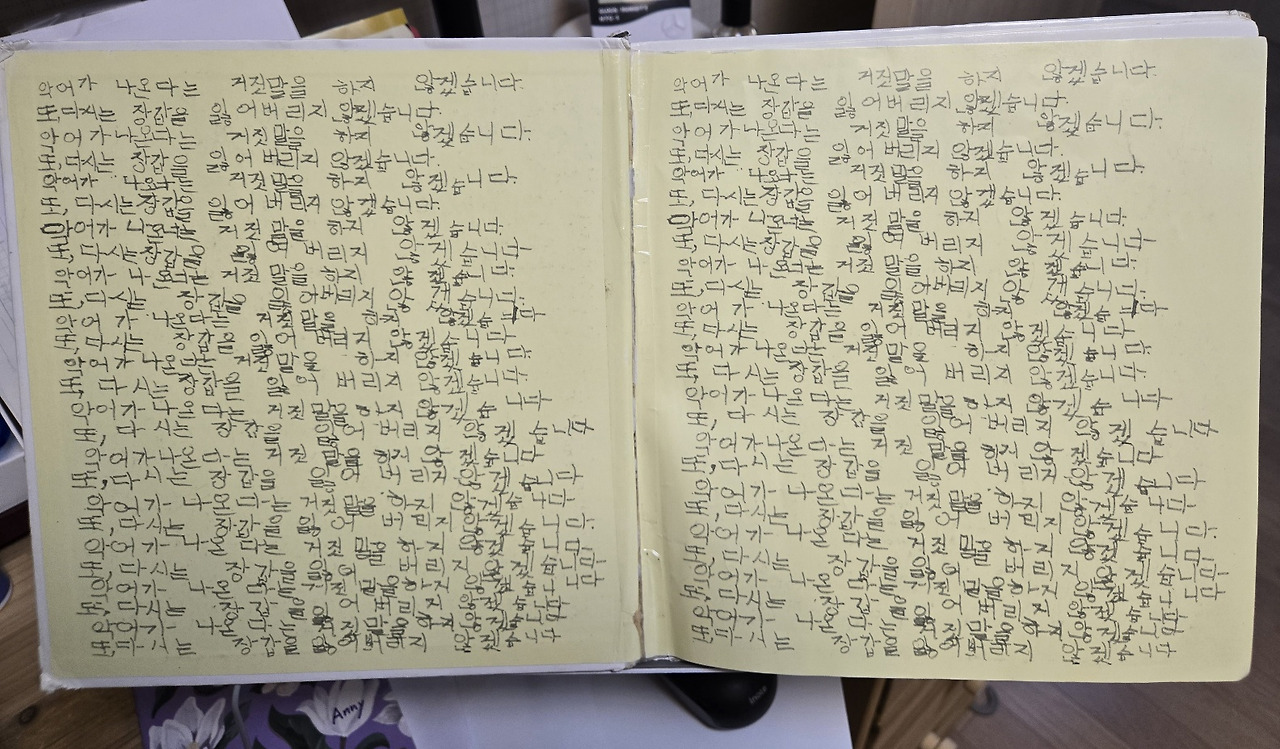 악어가 나온다는 거짓말을 하지 않겠습니다.
또, 다시는 장갑을 잃어버리지 않겠습니다.
악어가 나온다는 거짓말을 하지 않겠습니다.
또, 다시는 장갑을 잃어버리지 않겠습니다.
악어가 나온다는 거짓말을 하지 않겠습니다.
또, 다시는 장갑을 잃어버리지 않겠습니다.
악어가 나온다는 거짓말을 하지 않겠습니다.
또, 다시는 장갑을 잃어버리지 않겠습니다
악어가 나온다는 거짓말을 하지 않겠습니다.
또, 다시는 장갑을 잃어버리지 않겠습니다.
악어가 나온다는 거짓말을 하지 않겠습니다
또, 다시는 장갑을 잃어버리지 않겠습니다
악어가 나온다는 거짓말을 하지 않겠습니다.
또, 다시는 장갑을 잃어버리지 않겠습니다.
악어가 나온다는 거짓말을 하지 않겠습니다
또, 다시는 장갑을 잃어버리지 않겠습니다
악어가 나온다는 거짓말을 하지 않겠습니다
또, 다시는 장갑을 잃어버리지 않겠습니다
악어가 나온다는 거짓말을 하지 않겠습니다
또, 다시는 장갑을 잃어버리지 않겠습니다.
악어가 나온다는 거짓말을 하지 않겠습니다
또, 다시는 장갑을 잃어버리지 않겠습니다
악어가 나온다는 거짓말을 하지 않겠습니다
또, 다시는 장갑을 잃어버리지 않겠습니다
악어가 나온다는 거짓말을 하지 않겠습니다.
또, 다시는 장갑을 잃어버리지 않겠습니다.
악어가 나온다는 거짓말을 하지 않겠습니다.
또, 다시는 장갑을 잃어버리지 않겠습니다.
악어가 나온다는 거짓말을 하지 않겠습니다.
또, 다시는 장갑을 잃어버리지 않겠습니다.
악어가 나온다는 거짓말을 하지 않겠습니다.
또, 다시는 장갑을 잃어버리지 않겠습니다
악어가 나온다는 거짓말을 하지 않겠습니다.
또, 다시는 장갑을 잃어버리지 않겠습니다.
악어가 나온다는 거짓말을 하지 않겠습니다
또, 다시는 장갑을 잃어버리지 않겠습니다
악어가 나온다는 거짓말을 하지 않겠습니다.
또, 다시는 장갑을 잃어버리지 않겠습니다.
악어가 나온다는 거짓말을 하지 않겠습니다
또, 다시는 장갑을 잃어버리지 않겠습니다
악어가 나온다는 거짓말을 하지 않겠습니다
또, 다시는 장갑을 잃어버리지 않겠습니다
악어가 나온다는 거짓말을 하지 않겠습니다
또, 다시는 장갑을 잃어버리지 않겠습니다.
악어가 나온다는 거짓말을 하지 않겠습니다
또, 다시는 장갑을 잃어버리지 않겠습니다
악어가 나온다는 거짓말을 하지 않겠습니다
또, 다시는 장갑을 잃어버리지 않겠습니다
Anny